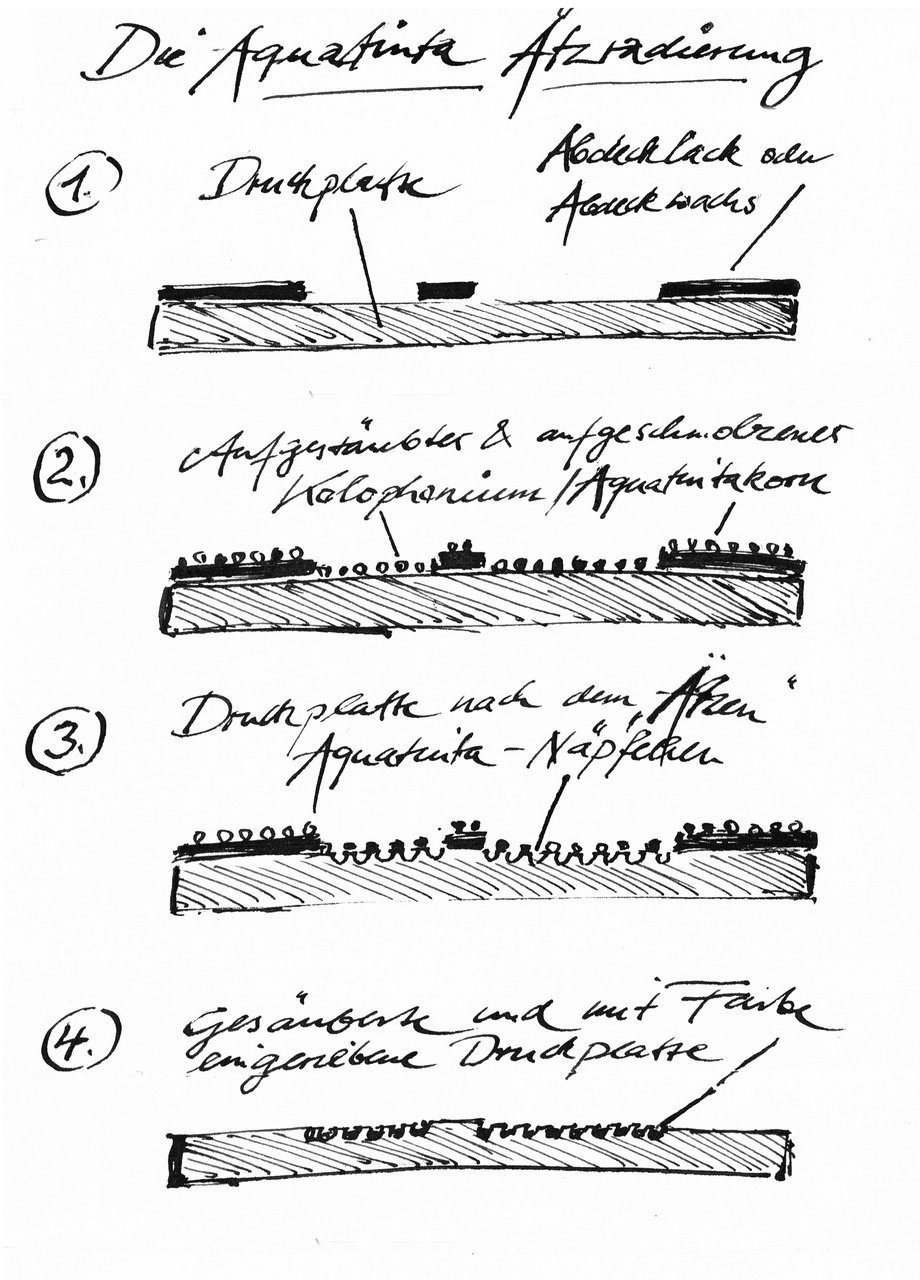 Die Aquatinta Ätzradierung
1.
Druckplatte
Abdecklack oder
Abdeckwachs
2.
Aufgestäubter & aufgeschmolzener
Kolophonium/Aquatintakorn
3.
Druckplatte nach dem "Ätzen"
Aquatinta-Näpfchen
4.
Gesäuberte und mit Farbe
eingeriebene Druckplatte